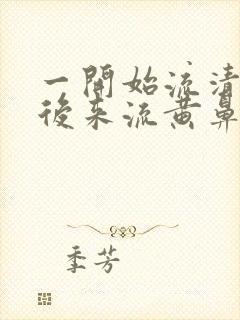 一開始流清
後來流黃鼻
季芳